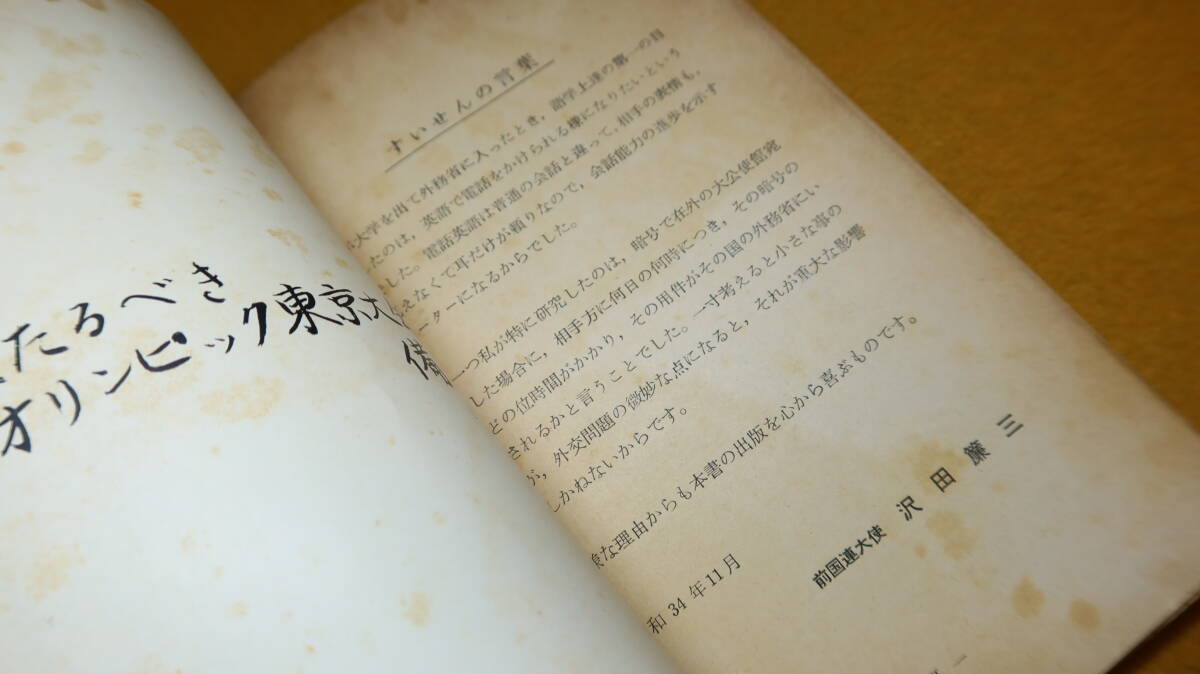 たるべき
オリンピック東京大
備
すいせんの言葉
大学を出て外務省に入ったとき，語学上達の第一の目
たのは，英語で電話をかけられる様になりたいという
した。電話英語は普通の会話と違って，相手の表情も，
えなくて耳だけが頼りなので，会話能力の進歩を示す
ーターになるからでした。
一つ私が特に研究したのは，暗号で在外の大公使館宛
した場合に，相手方に何日の何時につき，その暗号の
どの位時間がかかり，その用件がその国の外務省にい
されるかと言うことでした。一寸考えると小さな事の
が，外交問題の微妙な点になると，それが重大な影響
しかねないからです。
な理由からも本書の出版を心から喜ぶものです。
和 34 年 11 月
前国連大使 沢田簾三